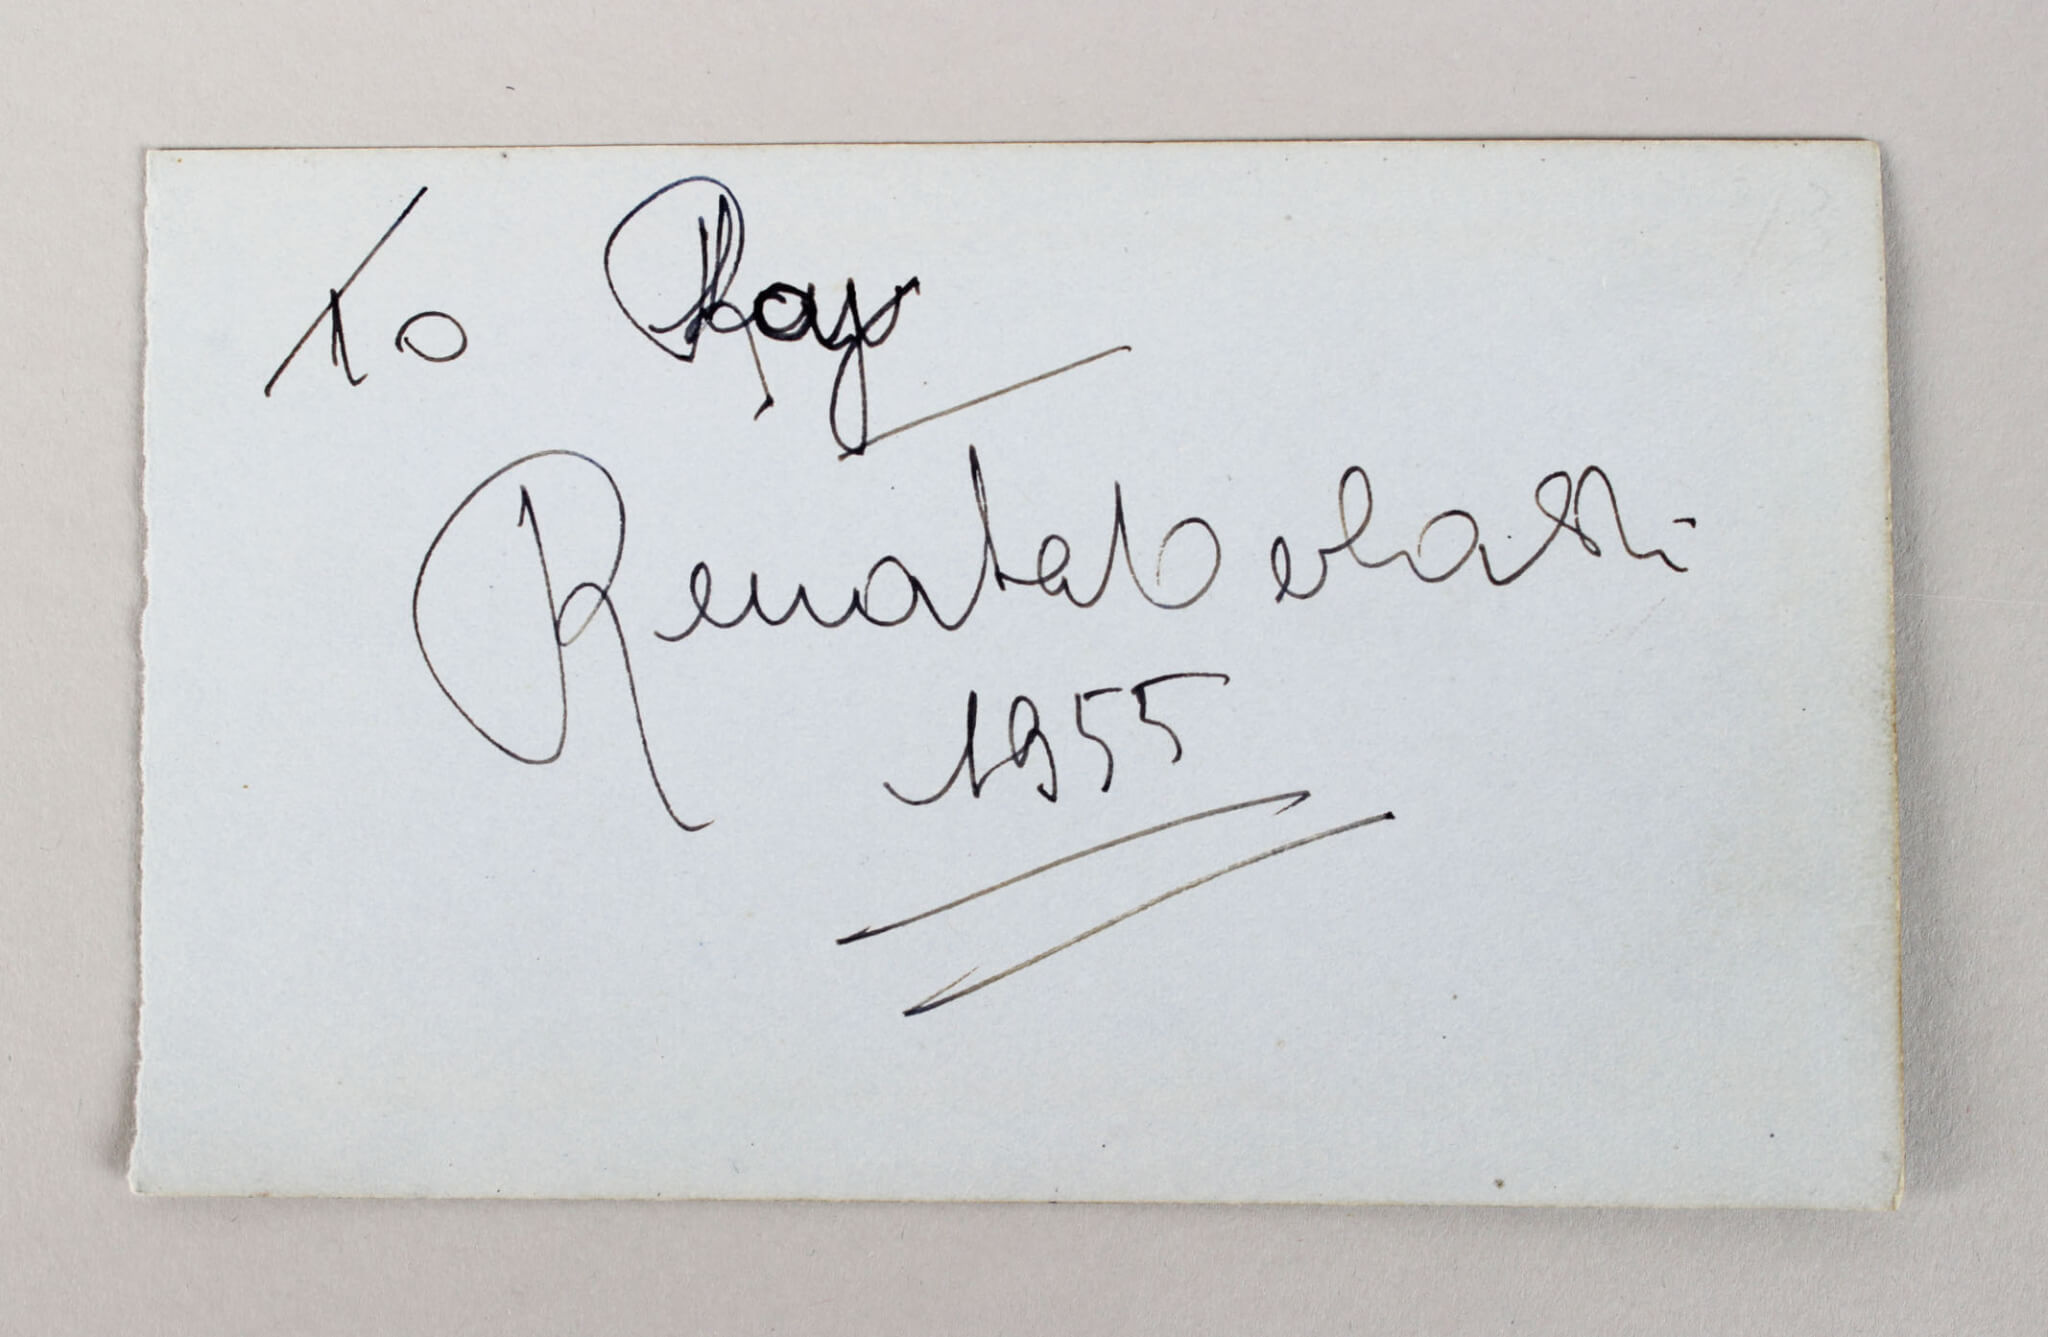 To Ray
Renata Tebaldi
1955